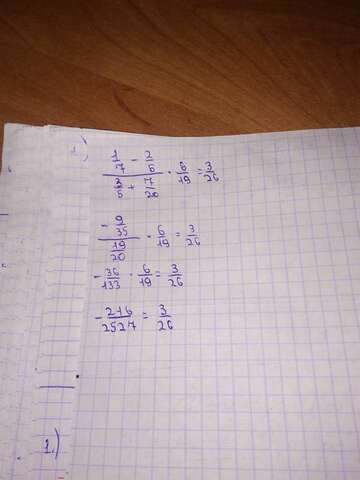 1.)
1/7 - 2/5 / 3/5 + 7/20 · 6/19 = 3/26
- 9/35 / 19/20 · 6/19 = 3/26
- 36/133 · 6/19 = 3/26
- 216/2527 = 3/26
2.)